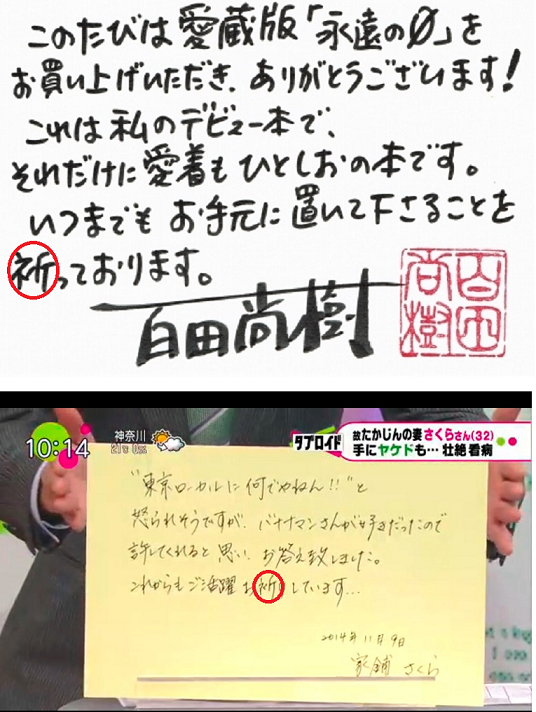 このたびは愛蔵版「永遠の0」を
お買い上げいただき、ありがとうございます!
これは私のデビュー本で、
それだけに愛着もひとしおの本です。
いつまでもお手元に置いて下さることを
祈っております。
百田尚樹
百田
尚樹
10:14
神奈川
タブロイド
故たかじんの妻さくらさん(32)
手にヤケドも…壮絶看病
"東京ローカルに何でやねん!!"と
怒られそうですが、バナナマンさんが好きだったので
許してくれると思い、お答え致しました。
これからもご活躍お祈りしています…
2014年11月9日
家鋪 さくら